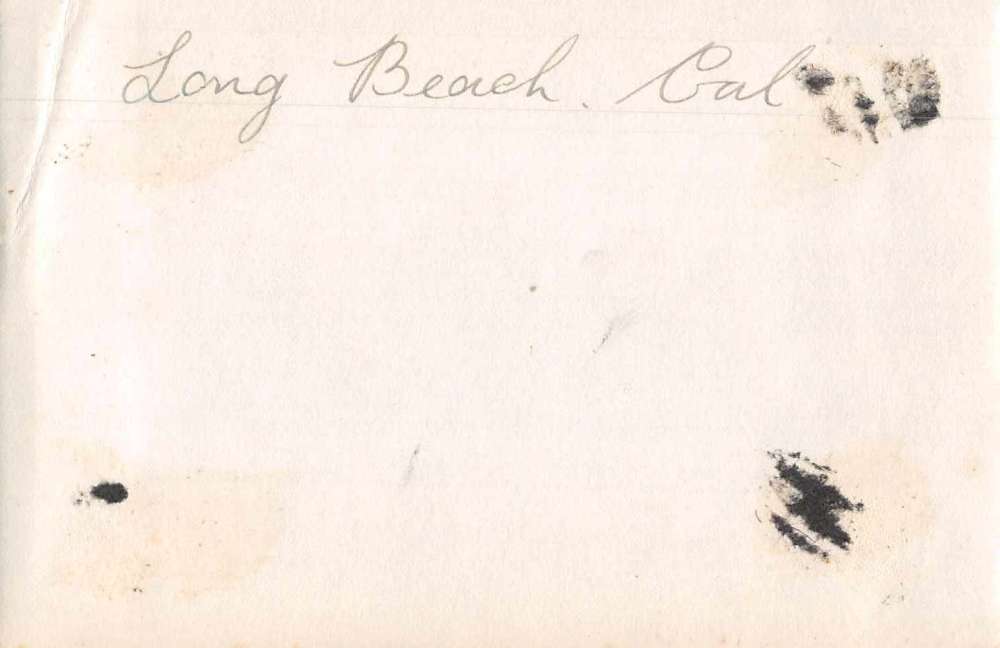 Long Beach. Cal